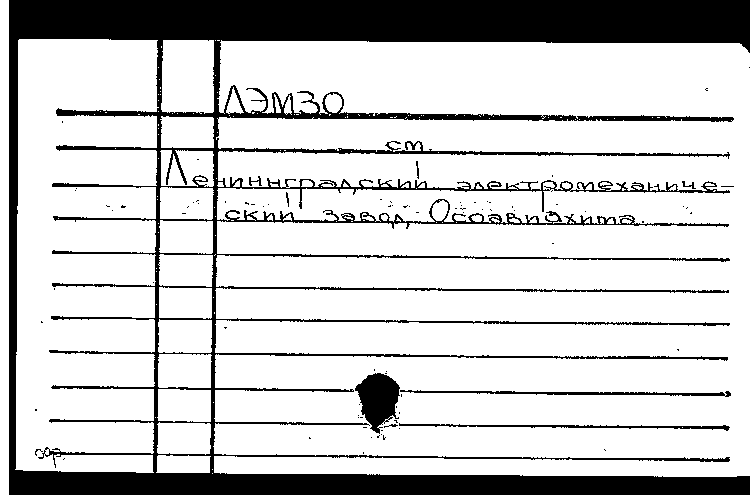 ЛЭМЗО
см.
Ленинградский электромеханиче-
ский завод Осоавиахима